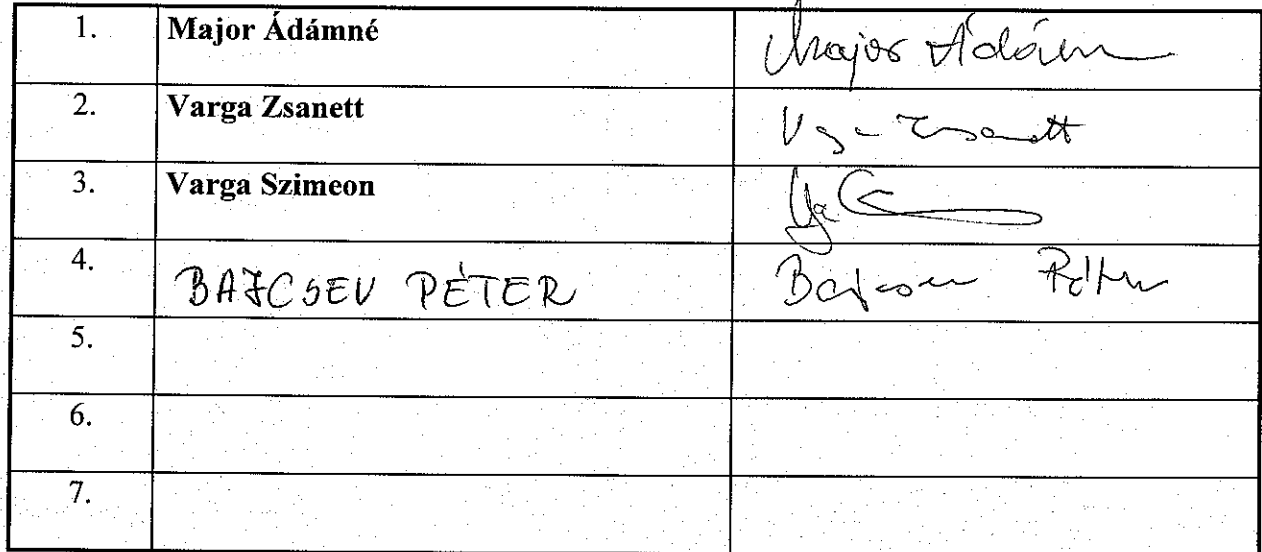 1. Major Ádámné Major Ádám
2. Varga Zsanett Zsanett
3. Varga Szimeon
4. BAJCSEV PÉTER Bajcsev Péter
5.
6.
7.